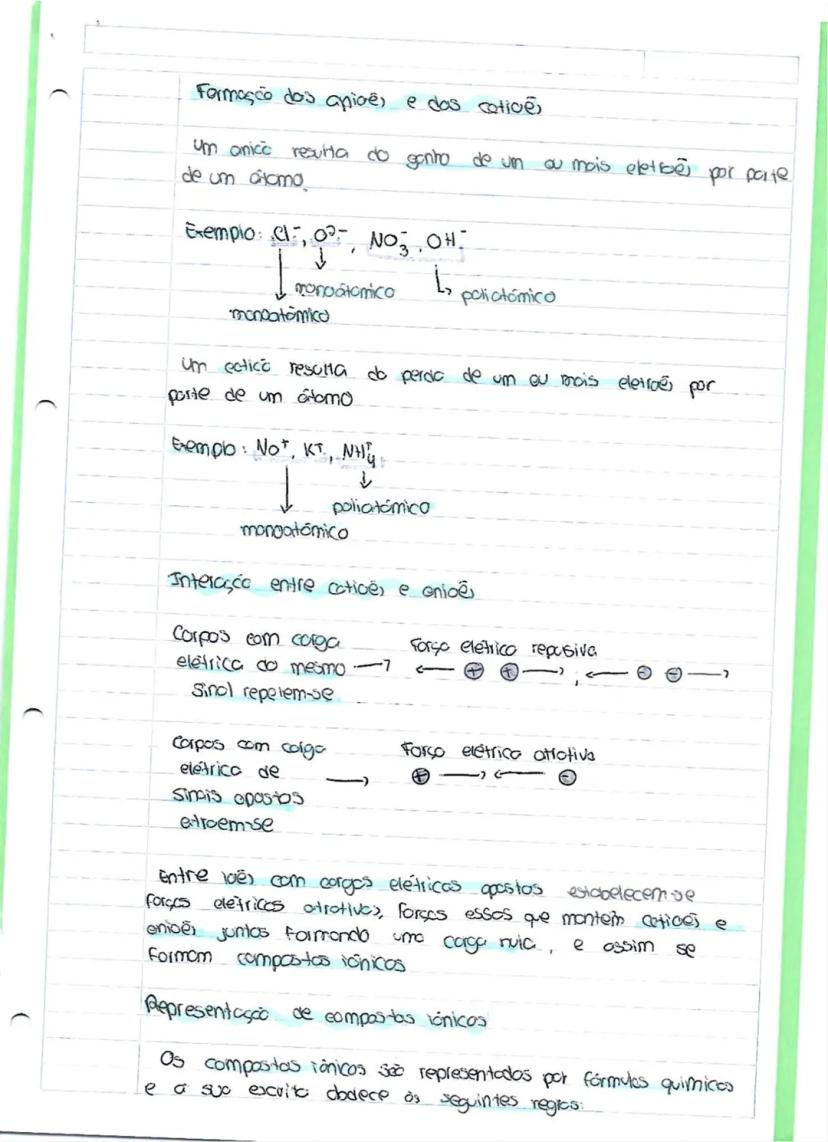 Formação dos aniões e dos catiões
Um anião resulta do ganho de um ou mais eletrões por parte
de um átomo.
Exemplo: Cl⁻, O²⁻, NO₃⁻, OH⁻
monoatómico poliatómico
monoatómico
Um catião resulta da perda de um ou mais eletrões por
parte de um átomo
Exemplo: Na⁺, K⁺, NH₄⁺
poliatómico
monoatómico
Interação entre catiões e aniões
Corpos com carga Força elétrica repusiva
elétrica do mesmo → ← ⊕ ⊕ →, ← ⊖ ⊖ →
sinal repelem-se
Corpos com carga Força elétrica atrativa
elétrica de → ⊕ → ← ⊖
sinais opostos
atraem-se
Entre iões com cargas elétricas opostas estabelecem-se
forças elétricas atrativas, forças essas que mantêm catiões e
aniões juntos formando uma carga nula, e assim se
formam compostos iónicos
Representação de compostos iónicos
Os compostos iónicos são representados por fórmulas químicas
e a sua escrita obedece às seguintes regras: